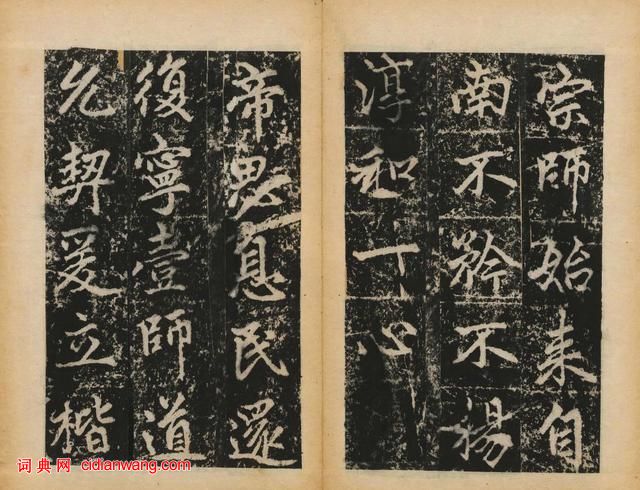 宗師始来自
南不矜不揚
淳和丁心
帝思息民還
復寧壹師道
允契爰立楷
词典网 cidianwang.com